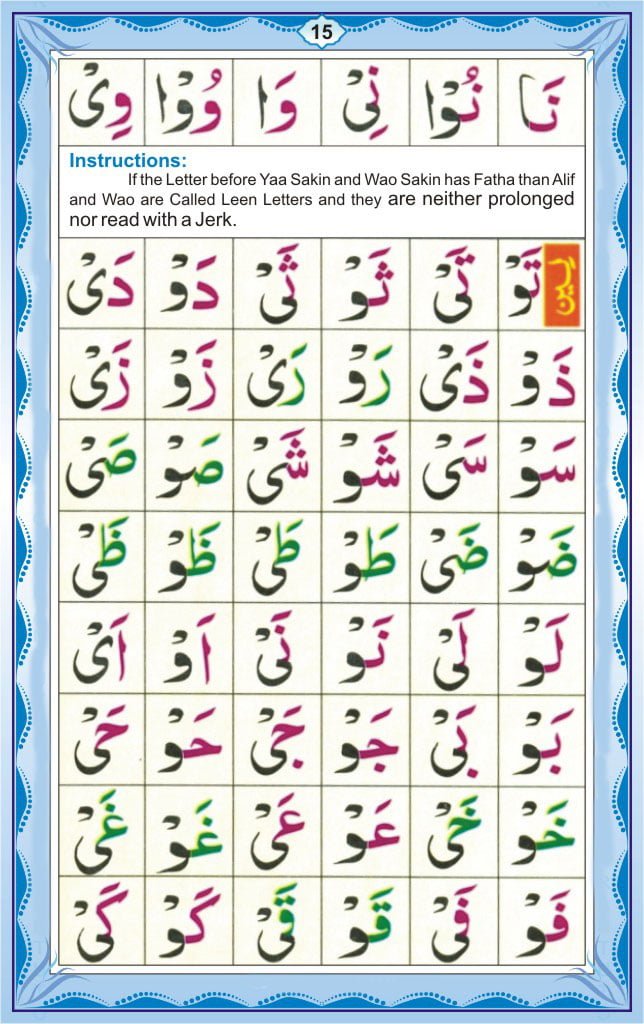 15
نَا نُوْا نِيْ وَا وُوْا وِيْ
Instructions:
If the Letter before Yaa Sakin and Wao Sakin has Fatha than Alif
and Wao are Called Leen Letters and they are neither prolonged
nor read with a Jerk.
لین تَوْ تَیْ ثَوْ ثَیْ دَوْ دَیْ
ذَوْ ذَیْ رَوْ رَیْ زَوْ زَیْ
سَوْ سَیْ شَوْ شَیْ صَوْ صَیْ
ضَوْ ضَیْ طَوْ طَیْ ظَوْ ظَیْ
لَوْ لَیْ نَوْ نَیْ اَوْ اَیْ
بَوْ بَیْ جَوْ جَیْ حَوْ حَیْ
خَوْ خَیْ عَوْ عَیْ غَوْ غَیْ
فَوْ فَیْ قَوْ قَیْ گَوْ گَیْ